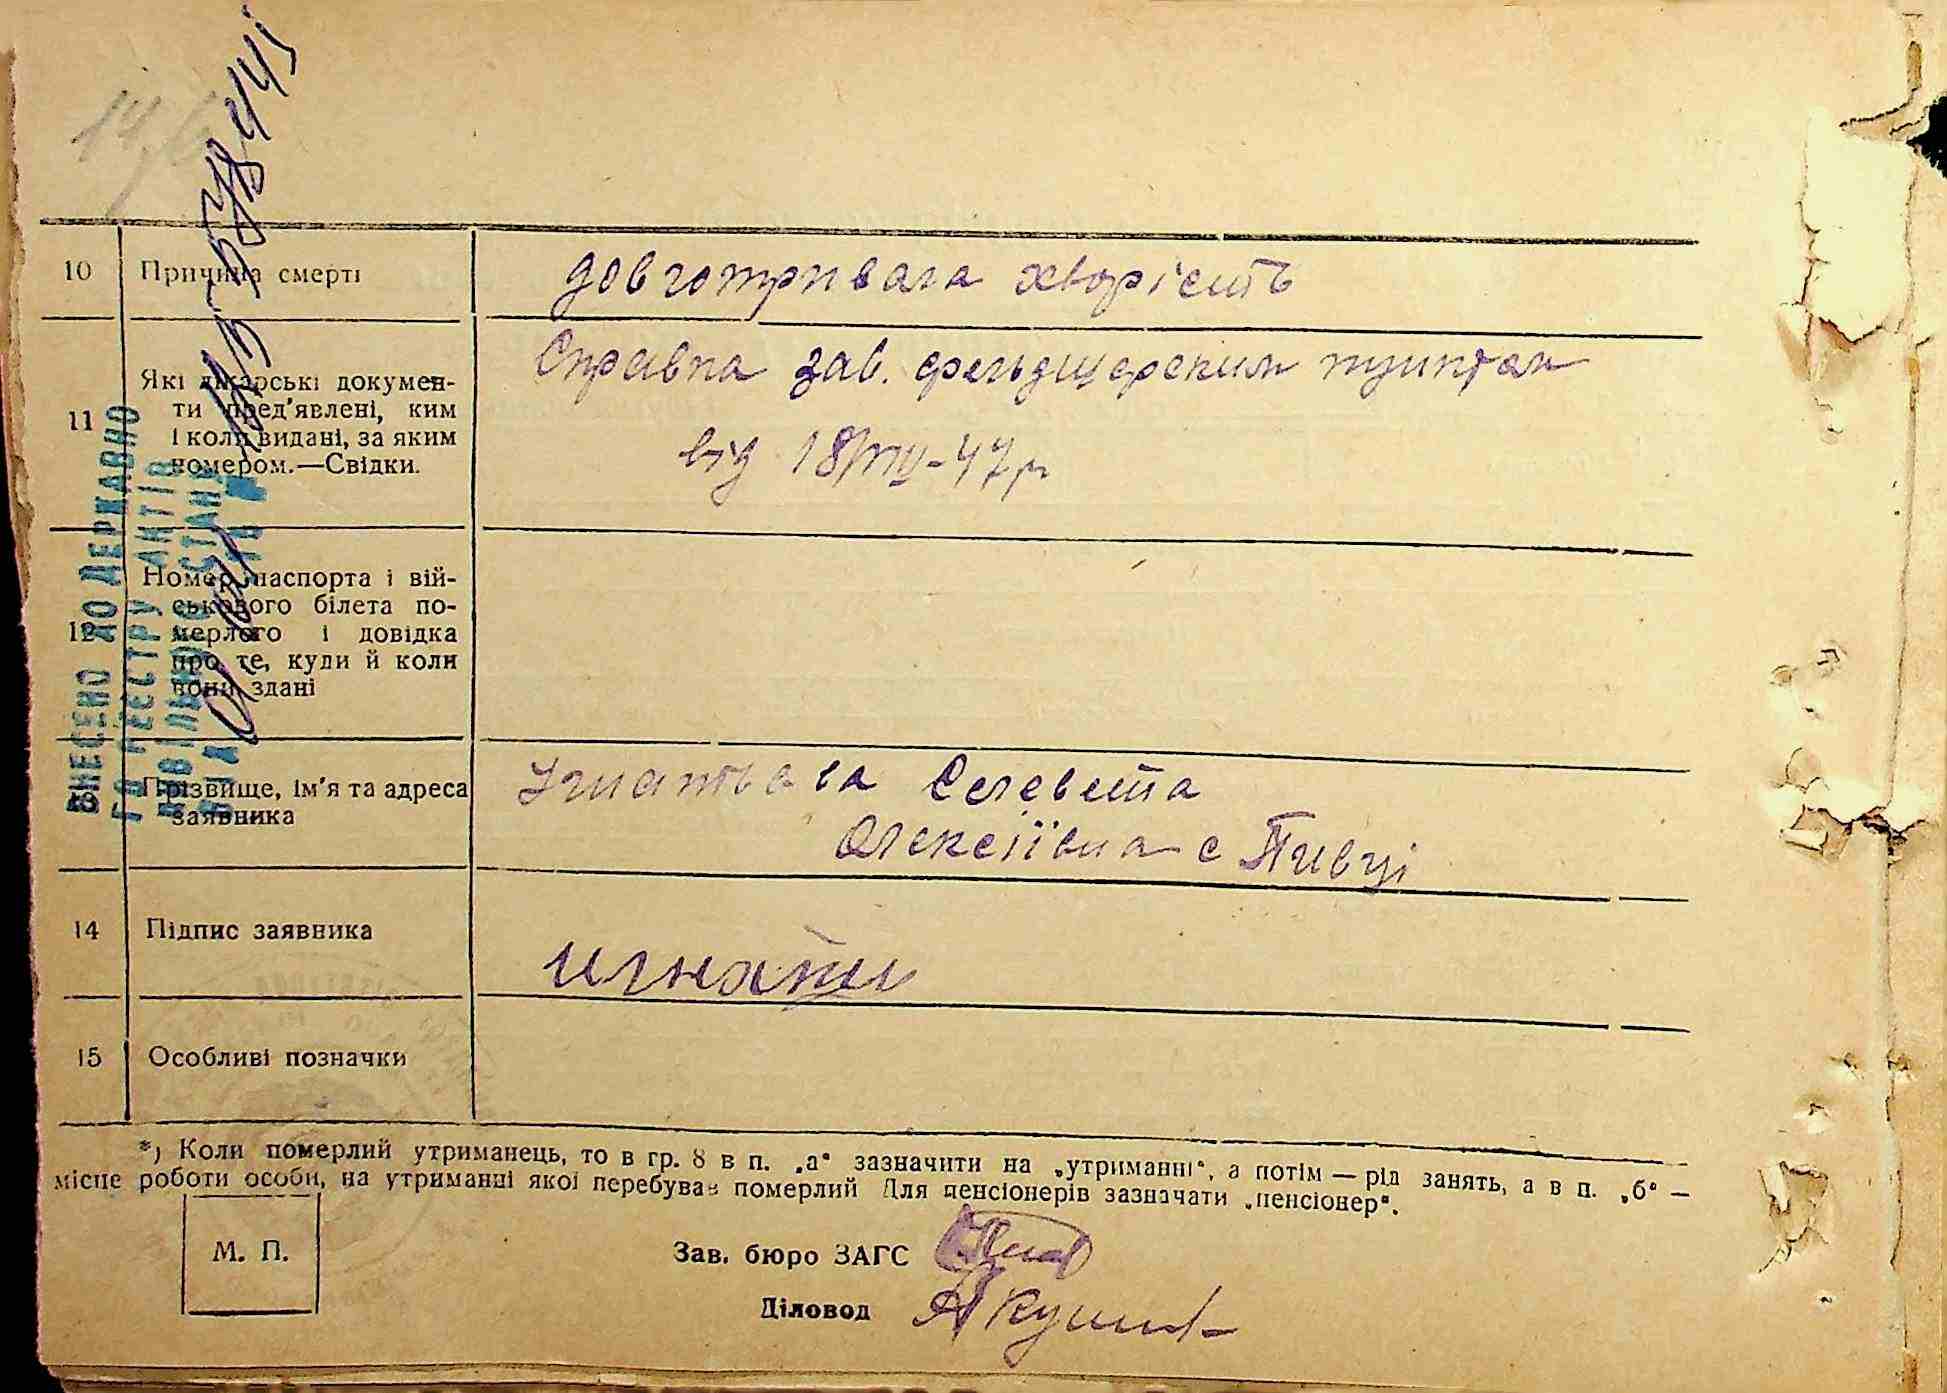 10 Причина смерті довготривала хворість
11 Які лікарські докумен-
ти пред'явлені, ким
і коли видані, за яким
номером.—Свідки.
Справка зав. фельдщерским пунктом
від 18/VIII-47р
12 Номер паспорта і вій-
ськового білета по-
мерлого і довідка
про те, куди й коли
вони здані
13 Прізвище, ім'я та адреса
заявника
Ігнатьєва Селевета
Олексіївна с Пивці
14 Підпис заявника
15 Особливі позначки
*) Коли померлий утриманець, то в гр. 8 в п. „а“ зазначити на „утриманні“, а потім — рід занять, а в п. „б“ —
місце роботи особи, на утриманні якої перебував померлий Для пенсіонерів зазначати „пенсіонер“.
М. П.
Зав. бюро ЗАГС
Діловод
ВНЕСЕНО ДО ДЕРЖАВНО
ГО РЕЄСТРУ АКТІВ
ЦИВІЛЬНОГО СТАНУ